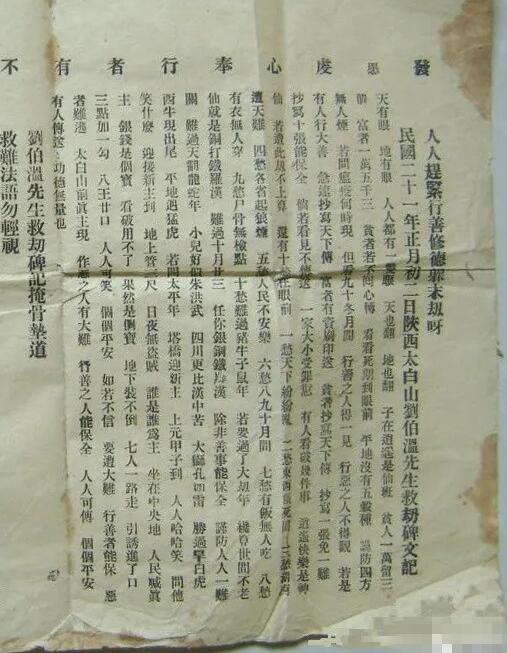 發愿虔心奉行者有不
人人趕緊行善修德末刼呀
民國二十一年正月初二日陝西太白山劉伯溫先生救刼碑文記
天有眼 地有眼 人人都有一雙眼 天也翻 地也翻 子在逍遙是仙班 貧人一萬留三
富者一萬五千三 貧者若不回心轉 看看死期到眼前 平地沒有五穀種 謹防四方
無人煙 若問瘟疫何時現 但看九十冬月間 行善之人得一見 行惡之人不得觀 若是
有人行大善 急速抄寫天下傳 富者有資刷印送 貧者抄寫天下傳 抄寫一張免一難
抄寫十張能保全 倘若看見不傳送 一家大小受罪愆 有人看破幾件事 逍遙快樂是神
仙 若遭此刼不上算 還有十愁在眼前 一愁天下紛紛亂 二愁東西餓死 三愁湖
遭大難 四愁各省起狼煙 五愁人民不安樂 六愁八九十月間 七愁有飯無人吃 八愁
有衣無人穿 九愁尸骨無檢點 十愁難過豬牛子鼠年 若要過了大刼年 纔算世間不老
仙就是銅打鐵羅漢 難過十月廿三 任你銀鋼鐵漢 除非善事能保全 謹防人人一難
關 難過天翻龍蛇年 小兒好似朱洪武 四川更比漢中苦 大獅孔如雷 勝過擎白虎
西牛現出尾 平地遇猛虎 若問太平年 塔橋迎新主 上元甲子到 人人哈哈笑 問他
笑什麼 迎接新主到 地上管三尺 日夜無盜賊 誰是誰為主 坐在中央地 人民喊眞
主 銀錢是個寶 看破用不了 果然是個寶 地下裝不倒 七人一路走 引誘進了口
三點加一勾 八王廿口 人人可笑 個個平安 如若不信 要遭大難 行善者能保 惡
者難逃 太白山前眞主現 作惡之人有大難 行善之人能保全 人人可傳 個個平安
有人傳送 功德無量也
劉伯溫先生救刼碑記掩骨墊道
救難法語勿輕視